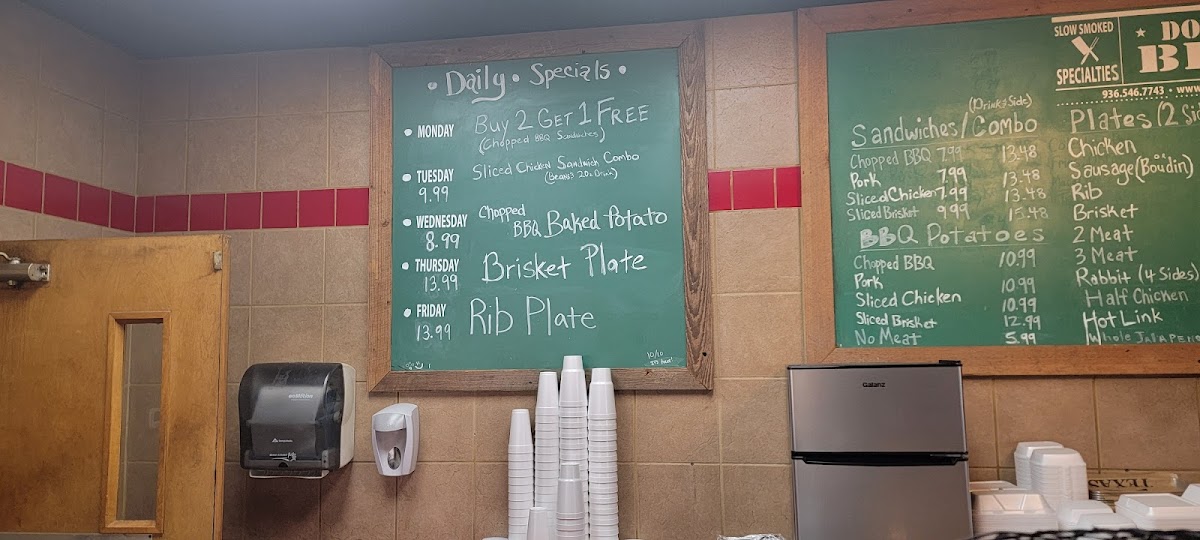 Daily • Specials •
• MONDAY Buy 2 GET 1 FREE
(Chopped BBQ Sandwiches)
• TUESDAY Sliced Chicken Sandwich Combo
9.99
• WEDNESDAY Chopped
8.99 BBQ Baked Potato
• THURSDAY Brisket Plate
13.99
• FRIDAY Rib Plate
13.99
10/10
SLOW SMOKED
SPECIALTIES
★ DO
B
936.546.7743 • www
(Drink & Side)
Sandwiches/Combo
Chopped BBQ 7.99 13.48
Pork 7.99 13.48
Sliced Chicken 7.99 13.48
Sliced Brisket 9.99 15.48
BBQ Potatoes
Chopped BBQ 10.99
Pork 10.99
Sliced Chicken 10.99
Sliced Brisket 12.99
No Meat 5.99
Plates (2 Si
Chicken
Sausage (Boudin)
Rib
Brisket
2 Meat
3 Meat
Rabbit (4 Sides)
Half Chicken
Hot Link
Whole Jalapeno
Galanz
TEXAS